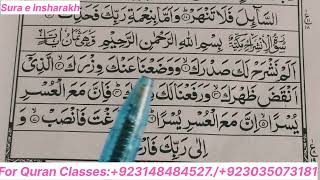 Sura e Insharakh
السَّآئِلَ فَلَا تَنْهَرْ ۝ وَاَمَّا بِنِعْمَةِ رَبِّكَ فَحَدِّثْ ۝
بِسْمِ اللهِ الرَّحْمٰنِ الرَّحِيْمِ
اَلَمْ نَشْرَحْ لَكَ صَدْرَكَ ۝ وَوَضَعْنَا عَنْكَ وِزْرَكَ ۝ الَّذِيْٓ
اَنْقَضَ ظَهْرَكَ ۝ وَرَفَعْنَا لَكَ فَاِنَّ مَعَ الْعُسْرِ
يُسْرًا ۝ اِنَّ مَعَ الْعُسْرِ يُسْرًا ۝ فَرَغْتَ فَانْصَبْ ۝
اِلٰى رَبِّكَ
For Quran Classes:+923148484527./+923035073181